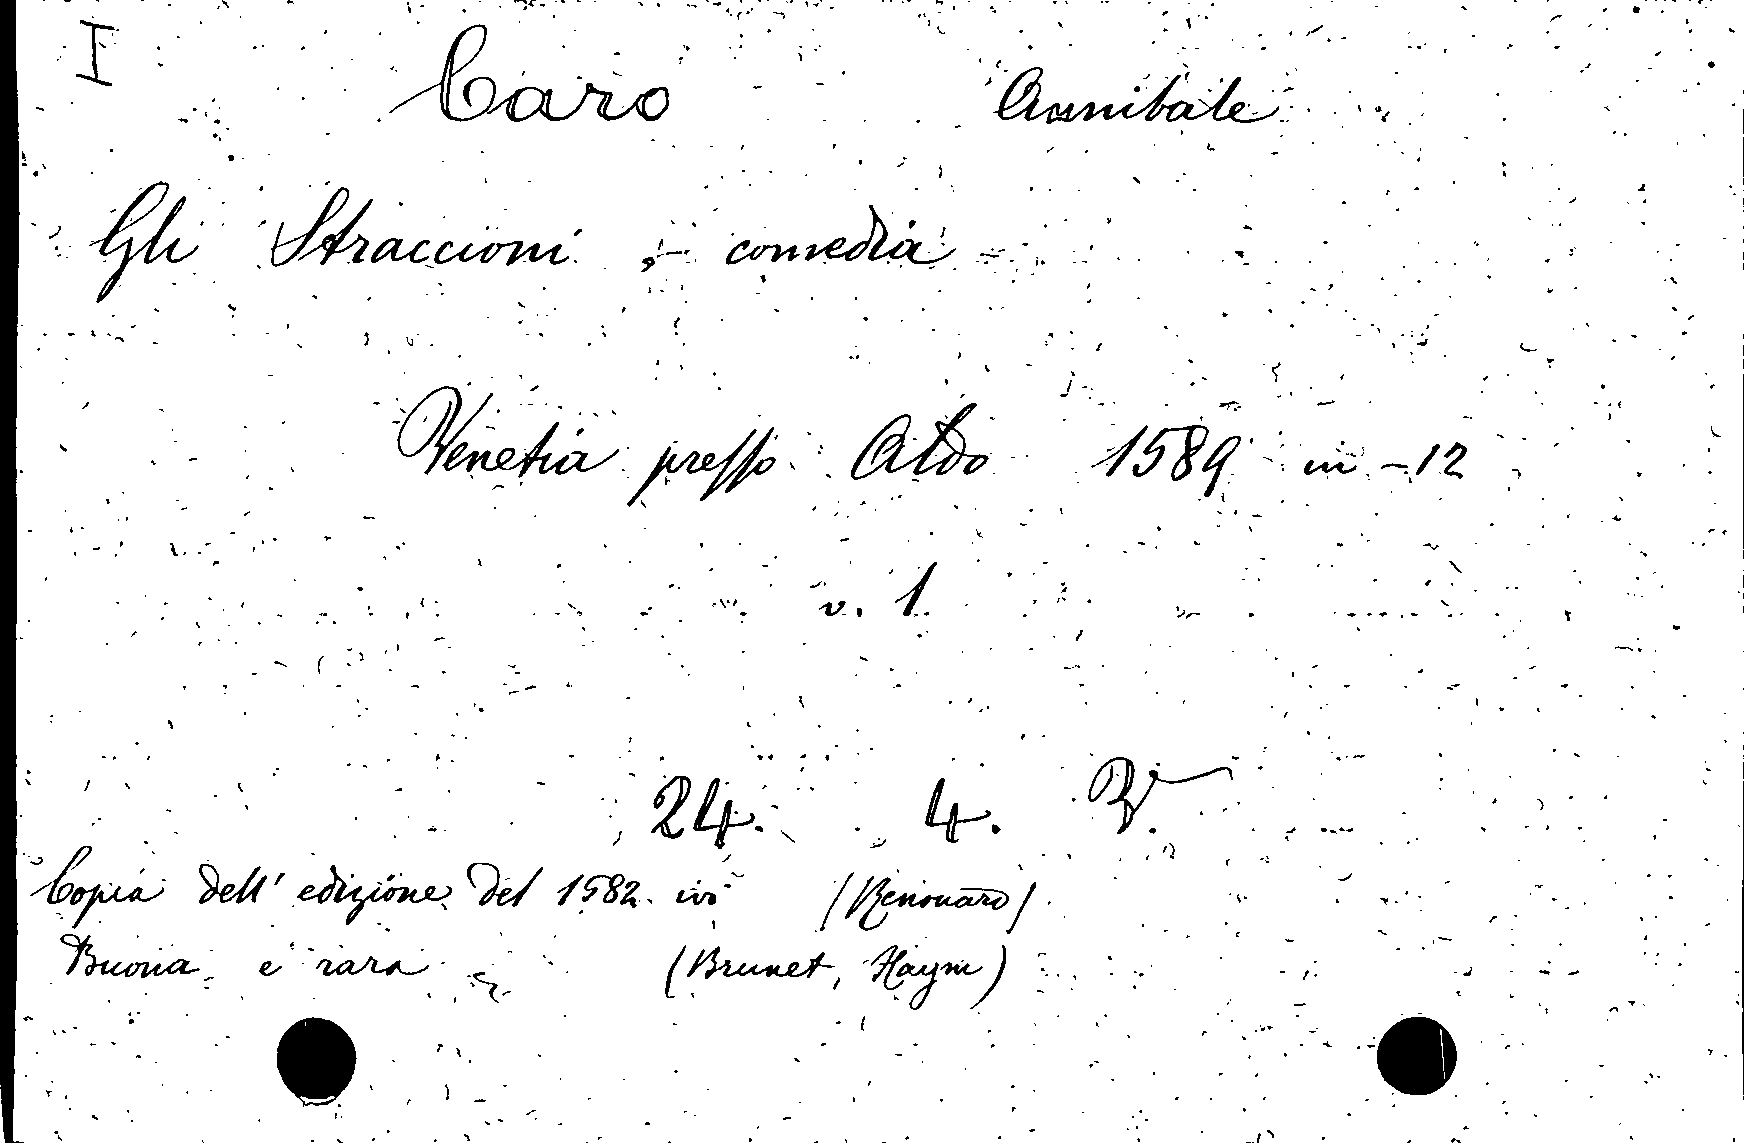 I Caro Annibale
Gli Straccioni, - comedia -
Venetia presso Aldo 1589 in-12
v. 1.
24. 4.
Copia dell' edizione del 1582. ivi (Renouard)
Buona e rara (Brunet, Haym)